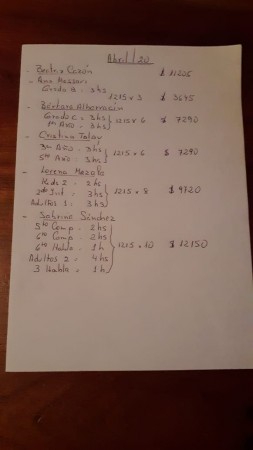 Abril / 20
- Beatriz Cazón $ 11225
- Ana Massari
Grado B = 3 hs 1215 x 3 $ 3645
- Bárbara Albarracín
Grado C = 3 hs
1º Año = 3 hs 1215 x 6 $ 7290
- Cristina
3º Año = 3 hs
5to Año = 3 hs 1215 x 6 $ 7290
- Lorena
Kids 2 = 2 hs
3 hs 1215 x 8 $ 9720
Adultos 1 = 3 hs
- Sabrina Sánchez
5to Comp = 2 hs
6to Comp = 2 hs
6to Habla = 1 h 1215 x 10 $ 12150
Adultos 2 = 4 hs
3 Habla = 1 h